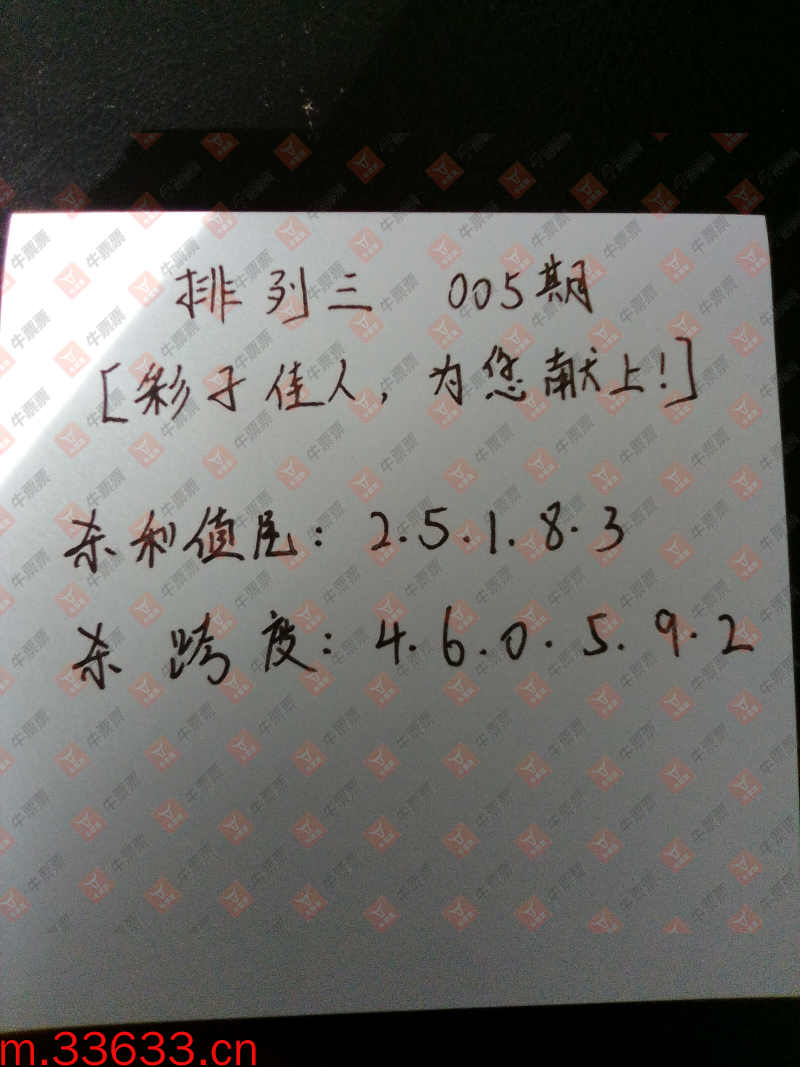 排列三 005期
[彩子佳人,为您献上!]
杀和值尾:2.5.1.8.3
杀跨度:4.6.0.5.9.2
牛票票
m.33633.cn